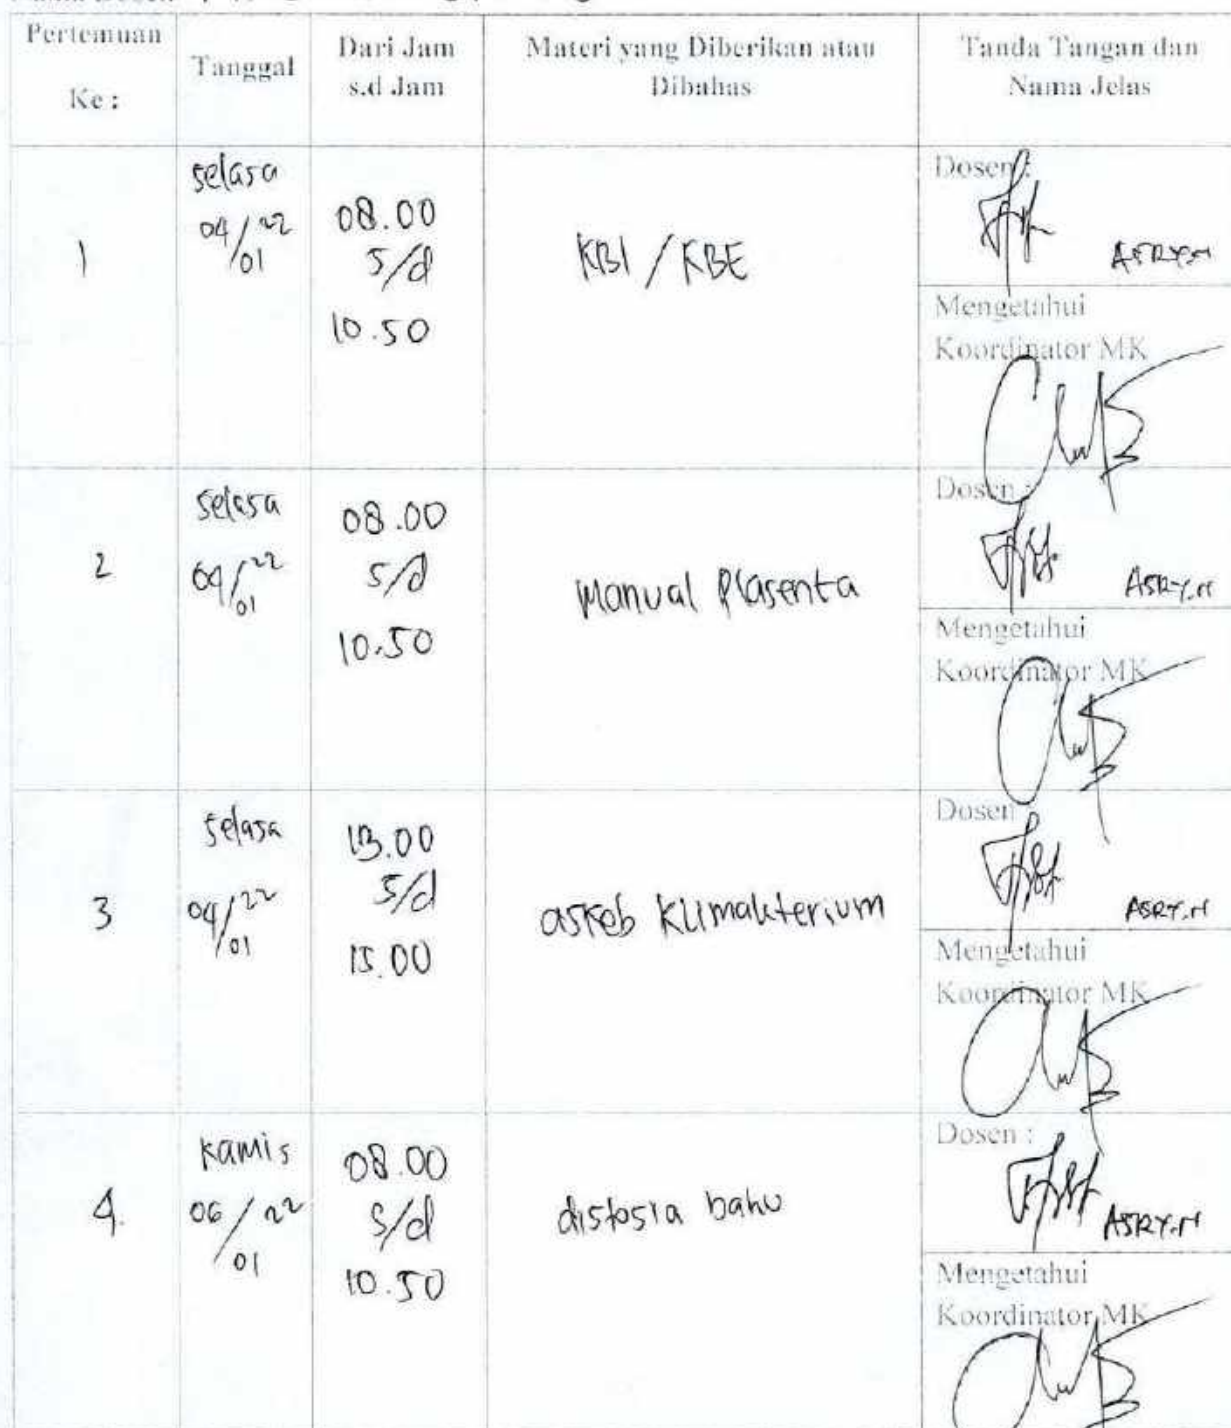 Pertemuan
Ke :
Tanggal
Dari Jam
s.d Jam
Materi yang Diberikan atau
Dibahas
Tanda Tangan dan
Nama Jelas
1
selasa
04/22
01
08.00
s/d
10.50
KBI / KBE
Dosen :
ASRY.N
Mengetahui
Koordinator MK
2
selasa
04/22
01
08.00
s/d
10.50
Manual Plasenta
Dosen :
ASRY.N
Mengetahui
Koordinator MK
3
selasa
04/22
01
13.00
s/d
15.00
askeb klimakterium
Dosen
ASRY.N
Mengetahui
Koordinator MK
4.
kamis
06/22
01
08.00
s/d
10.50
distosia bahu
Dosen :
ASRY.N
Mengetahui
Koordinator MK